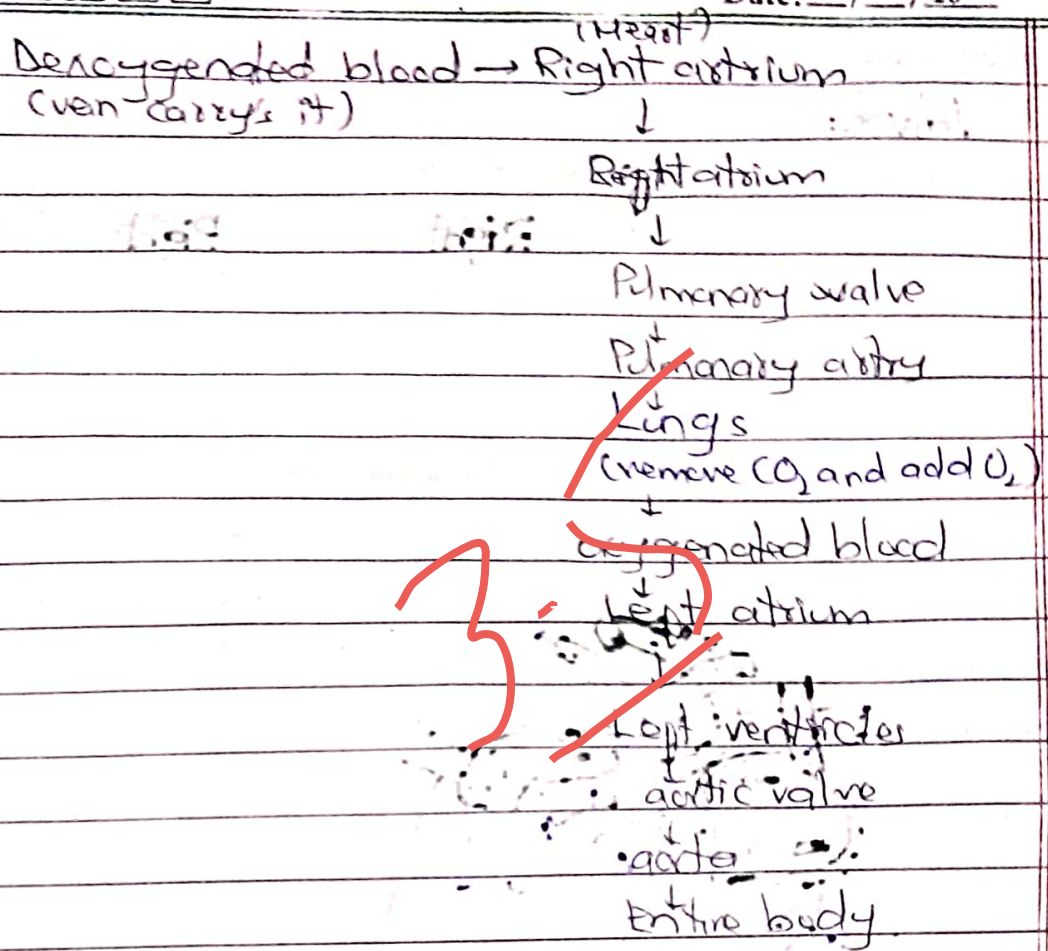 (Heart)
Deroxygenated blood → Right artrium
(vein carry's it)
↓
Right atrium
↓
Pulmonary valve
↓
Pulmonary artry
↓
Lings
(remove CO₂ and add O₂)
↓
oxygenated blood
↓
Lept atrium
↓
Lept ventricles
↓
aortic valve
↓
aorta
↓
Entire body
3.5